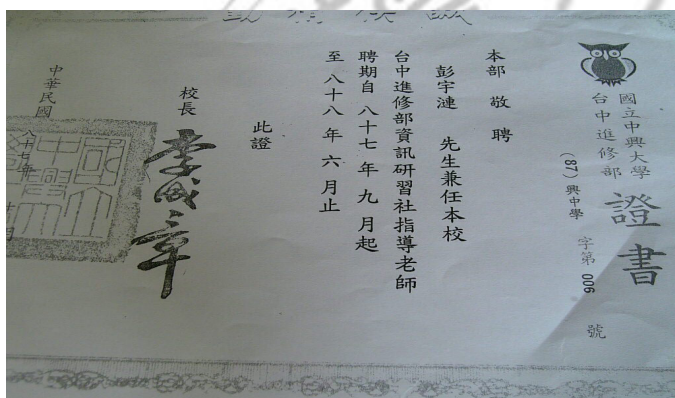 國立中興大學
台中進修部
證書
(87) 興中學 字第 006 號
本部 敬 聘
彭宇漣 先生兼任本校
台中進修部資訊研習社指導老師
聘期自 八十七 年 九 月起
至 八十八 年 六 月止
此證
校長 李成章
中華民國 八十七年
月